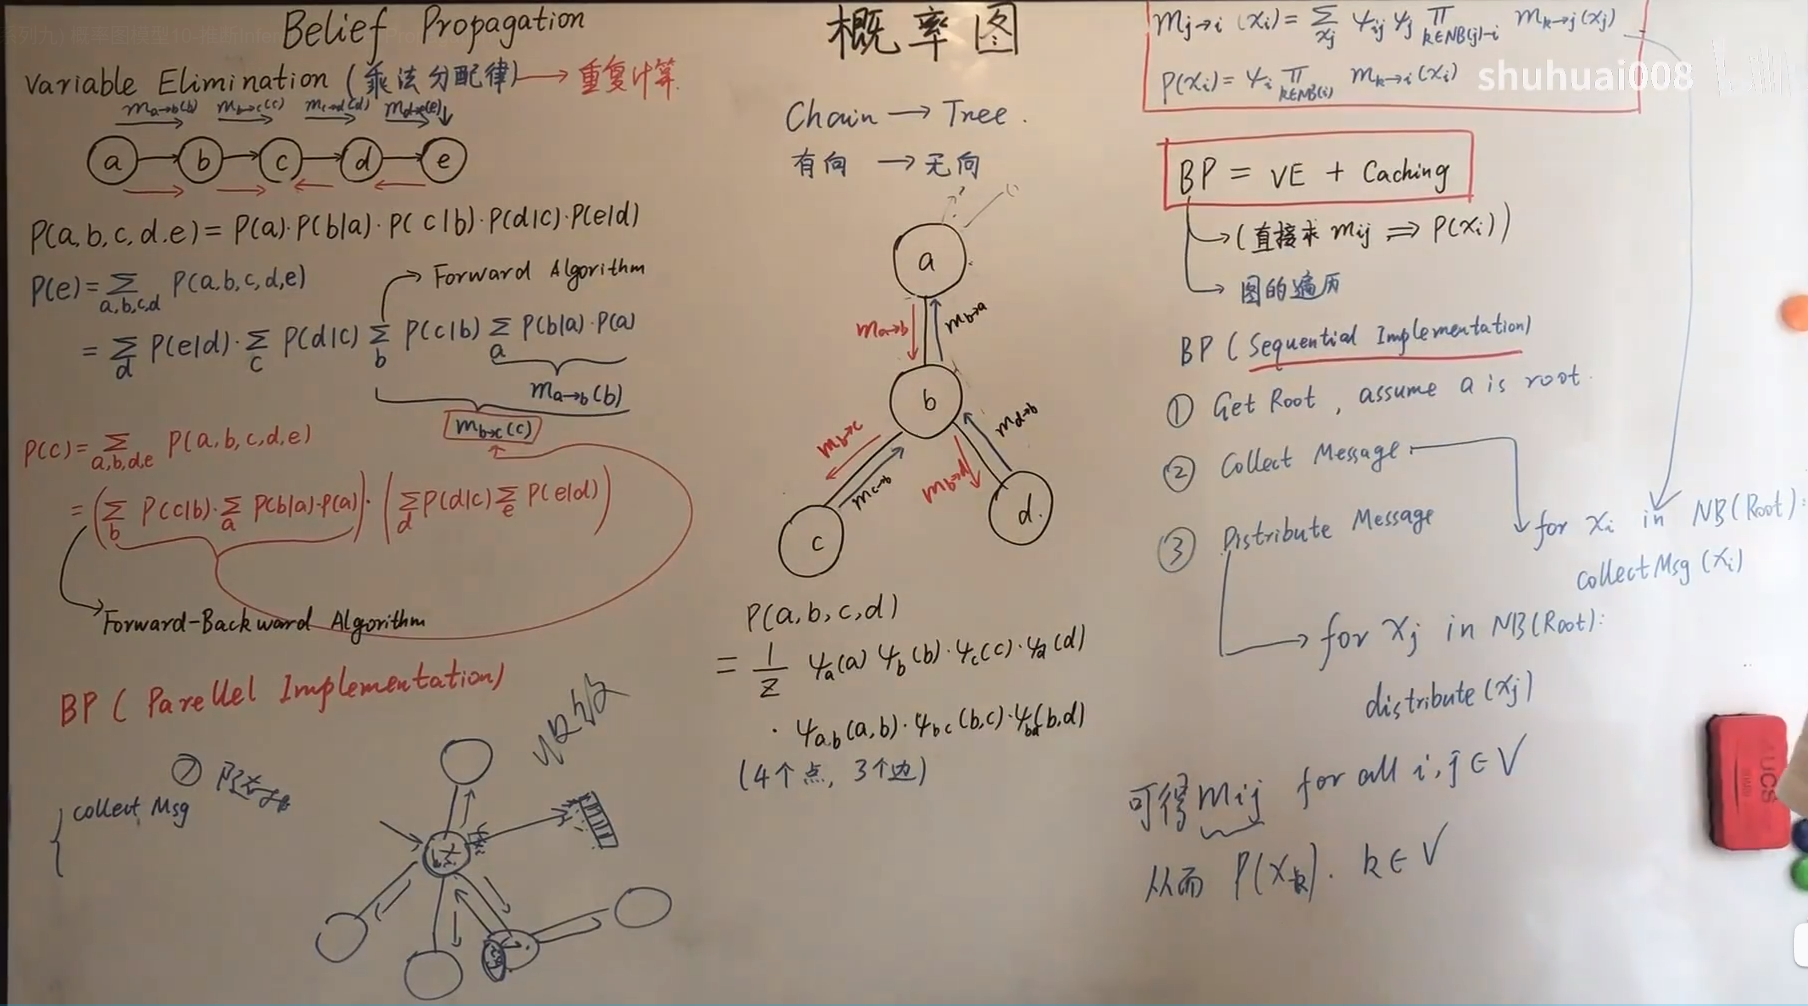 Belief Propagation
Variable Elimination (乘法分配律) → 重复计算
m_{a→b}(b) m_{b→c}(c) m_{c→d}(d) m_{d→e}(e)
a → b → c → d → e
P(a,b,c,d,e) = P(a)·P(b|a)·P(c|b)·P(d|c)·P(e|d)
P(e) = Σ_{a,b,c,d} P(a,b,c,d,e)
→ Forward Algorithm
= Σ_d P(e|d)·Σ_c P(d|c) Σ_b P(c|b) Σ_a P(b|a)·P(a)
m_{a→b}(b)
m_{b→c}(c)
P(c) = Σ_{a,b,d,e} P(a,b,c,d,e)
= (Σ_b P(c|b)·Σ_a P(b|a)·P(a))·(Σ_d P(d|c) Σ_e P(e|d))
Forward-Backward Algorithm
BP (Parellel Implementation)
collect Msg
概率图
Chain → Tree.
有向 → 无向
a
m_{a→b} m_{b→a}
b
m_{b→c} m_{c→b} m_{b→d} m_{d→b}
c
d
P(a,b,c,d)
= 1/Z ψ_a(a) ψ_b(b)·ψ_c(c)·ψ_d(d)
· ψ_{a,b}(a,b)·ψ_{bc}(b,c)·ψ_{bd}(b,d)
(4个点, 3个边)
m_{j→i}(x_i) = Σ_{x_j} ψ_{ij} ψ_j Π_{k∈NB(j)-i} m_{k→j}(x_j)
P(x_i) = ψ_i Π_{k∈NB(i)} m_{k→i}(x_i)
shuhuai008
BP = VE + Caching
→ (直接求 m_{ij} ⇒ P(x_i))
→ 图的遍历
BP (Sequential Implementation)
① Get Root, assume a is root.
② Collect Message
for x_i in NB(Root):
collectMsg(x_i)
③ Distribute Message
for x_j in NB(Root):
distribute(x_j)
可得 m_{ij} for all i,j∈V
从而 P(x_k). k∈V
AUCS